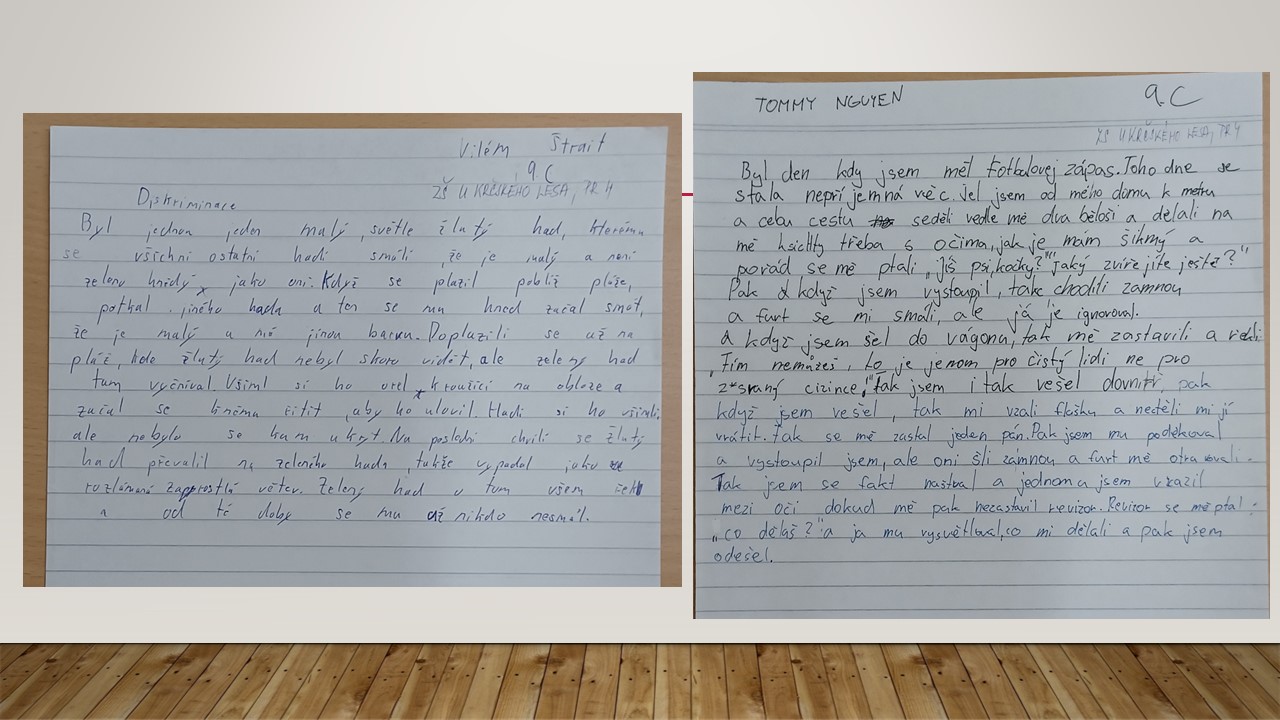 Vilém Štrait
9.C
ZŠ U KRČSKÉHO LESA, PR 4
Diskriminace
Byl jednou jeden malý, světle žlutý had, kterému
se všichni ostatní hadi smáli, že je malý a není
zeleno hnědý, jako oni. Když se plazil poblíž pláže,
potkal jiného hada a ten se mu hned začal smát,
že je malý a má jinou barvu. Doplazili se až na
pláž, kde žlutý had nebyl skoro vidět, ale zelený had
tam vyčníval. Všiml si ho orel kroužící na obloze a
začal se k němu řítit, aby ho ulovil. Hadi si ho všimli,
ale nebylo se kam ukryt. Na poslední chvíli se žlutý
had převalil na zeleného hada, takže vypadal jako
rozlámaná větev. Zelený had o tom všem řekl
a od té doby se mu už nikdo nesmál.
TOMMY NGUYEN
9.C
ZŠ U KRČSKÉHO LESA, PR 4
Byl den kdy jsem měl fotbalovej zápas. Toho dne se
stala nepříjemná věc. Jel jsem od mého domu k metru
a celou cestu seděli vedle mě dva běloši a dělali na
mě ksichty třeba s očima, jak je mám šikmý a
pořád se mě ptali „Jíš psi, kočky?" „Jaký zvíře jíte ještě?"
Pak když jsem vystoupil, tak chodili zamnou
a furt se mi smáli, ale já je ignoroval.
A když jsem šel do vágonu, tak mě zastavili a řekli:
„Tím nemůžeš, to je jenom pro čistý lidi ne pro
z*sraný cizince", tak jsem i tak vešel dovnitř, pak
když jsem vešel, tak mi vzali flašku a nechtěli mi jí
vrátit. Tak se mě zastal jeden pán. Pak jsem mu poděkoval
a vystoupil jsem, ale oni šli zamnou a furt mě otravovali.
Tak jsem se fakt naštval a jednomu jsem vrazil
mezi oči dokud mě pak nezastavil revizor. Revizor se mě ptal:
„co děláš?" a ja mu vysvětloval, co mi dělali a pak jsem
odešel.